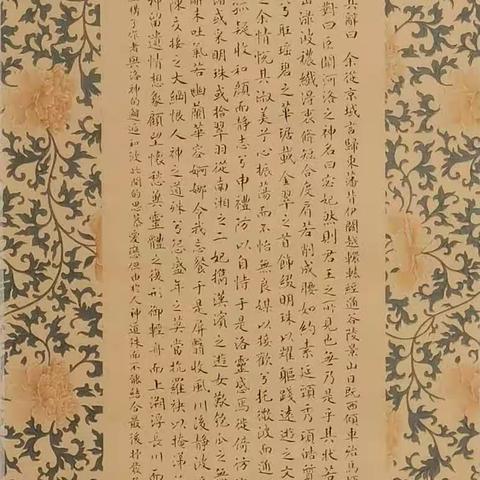 其辭曰 余從京域言歸東藩背伊闕越轘轅經通谷陵景山日既西傾車殆馬
對曰臣聞河洛之神名曰宓妃然則君王之所見也無乃是乎其狀若
出淥波穠纖得衷脩短合度肩若削成腰如約素延頸秀項皓質
兮珥瑤碧之華琚戴金翠之首飾綴明珠以耀軀踐遠遊之文
之余情悅其淑美兮心振蕩而不怡無良媒以接歡兮托微波而通
然狐疑收和顏而靜志兮申禮防以自持于是洛靈感焉徙倚彷
渚或采明珠或拾翠羽從南湘之二妃攜漢濱之遊女歎匏瓜之無
辭未吐氣若幽蘭華容婀娜令我忘餐于是屏翳收風川後靜波
陳交接之大綱恨人神之道殊兮怨盛年之莫當抗羅袂以掩涕
神留遺情想象顧望懷愁冀靈體之復形御輕舟而上溯浮長川而
構了作者與洛神的邂逅和彼此間的思慕愛戀但由於人神道殊而不能結合最後抒發